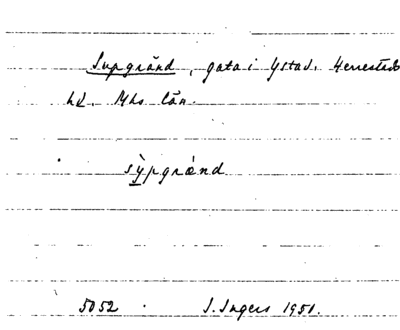 Supgränd, gata i Ystad. Herrestads
hd. Mhs län.
sỳpgrænd
5052 . I. Ingers 1951.